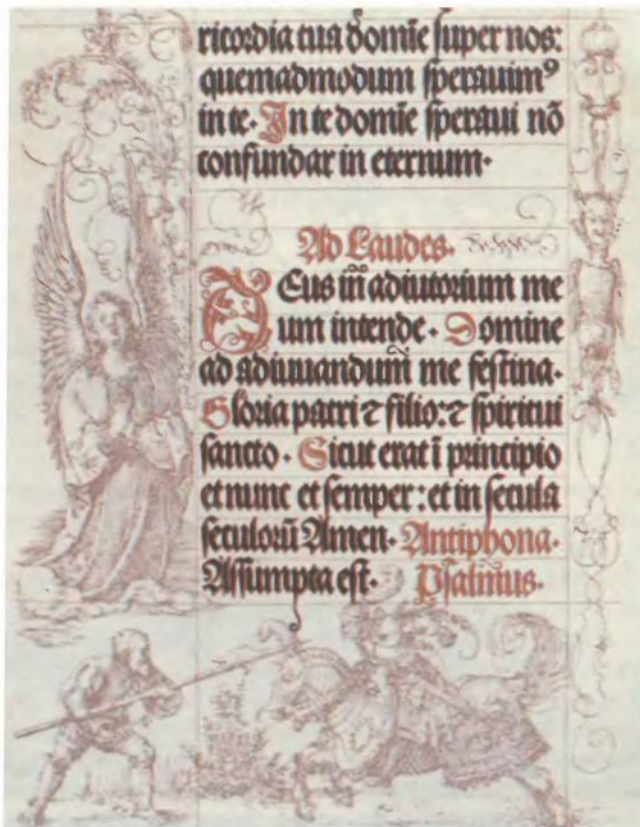 ricordia tua domīe super nos:
quemadmodum sperauimꝰ
in te. In te domīe speraui nō
confundar in eternum.
Ad Laudes.
DEus in̄ adiutorium me
um intende. Domine
ad adiuuandum̄ me festina.
Gloria patri ⁊ filio: ⁊ spiritui
sancto. Sicut erat ī principio
et nunc et semper: et in secula
seculorū Amen. Antiphona.
Assumpta est. Psalmus.